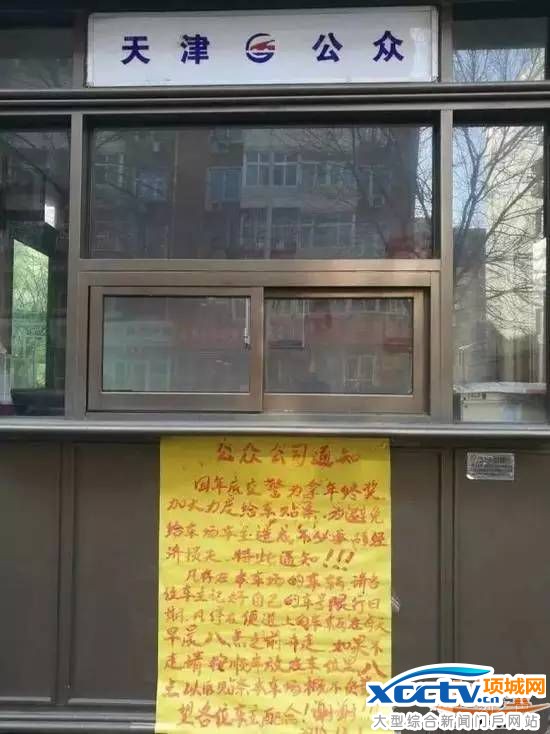 天津 公众
公众公司通知
因年底交警为拿年终奖
加大力度给车贴条，为避免
给车场车主造成不必要的经
济损失，特此通知！！！
凡存在本车场的车辆，请各
位车主记好自己的车号限行日
期，凡停在便道上的车辆在今天
早晨八点之前开走 如果不
走请按顺序放在车位里，八
点以后贴条本车场概不负责
望各位车主配合！谢谢
xcctv.cn 项城网
大型综合新闻门户网站